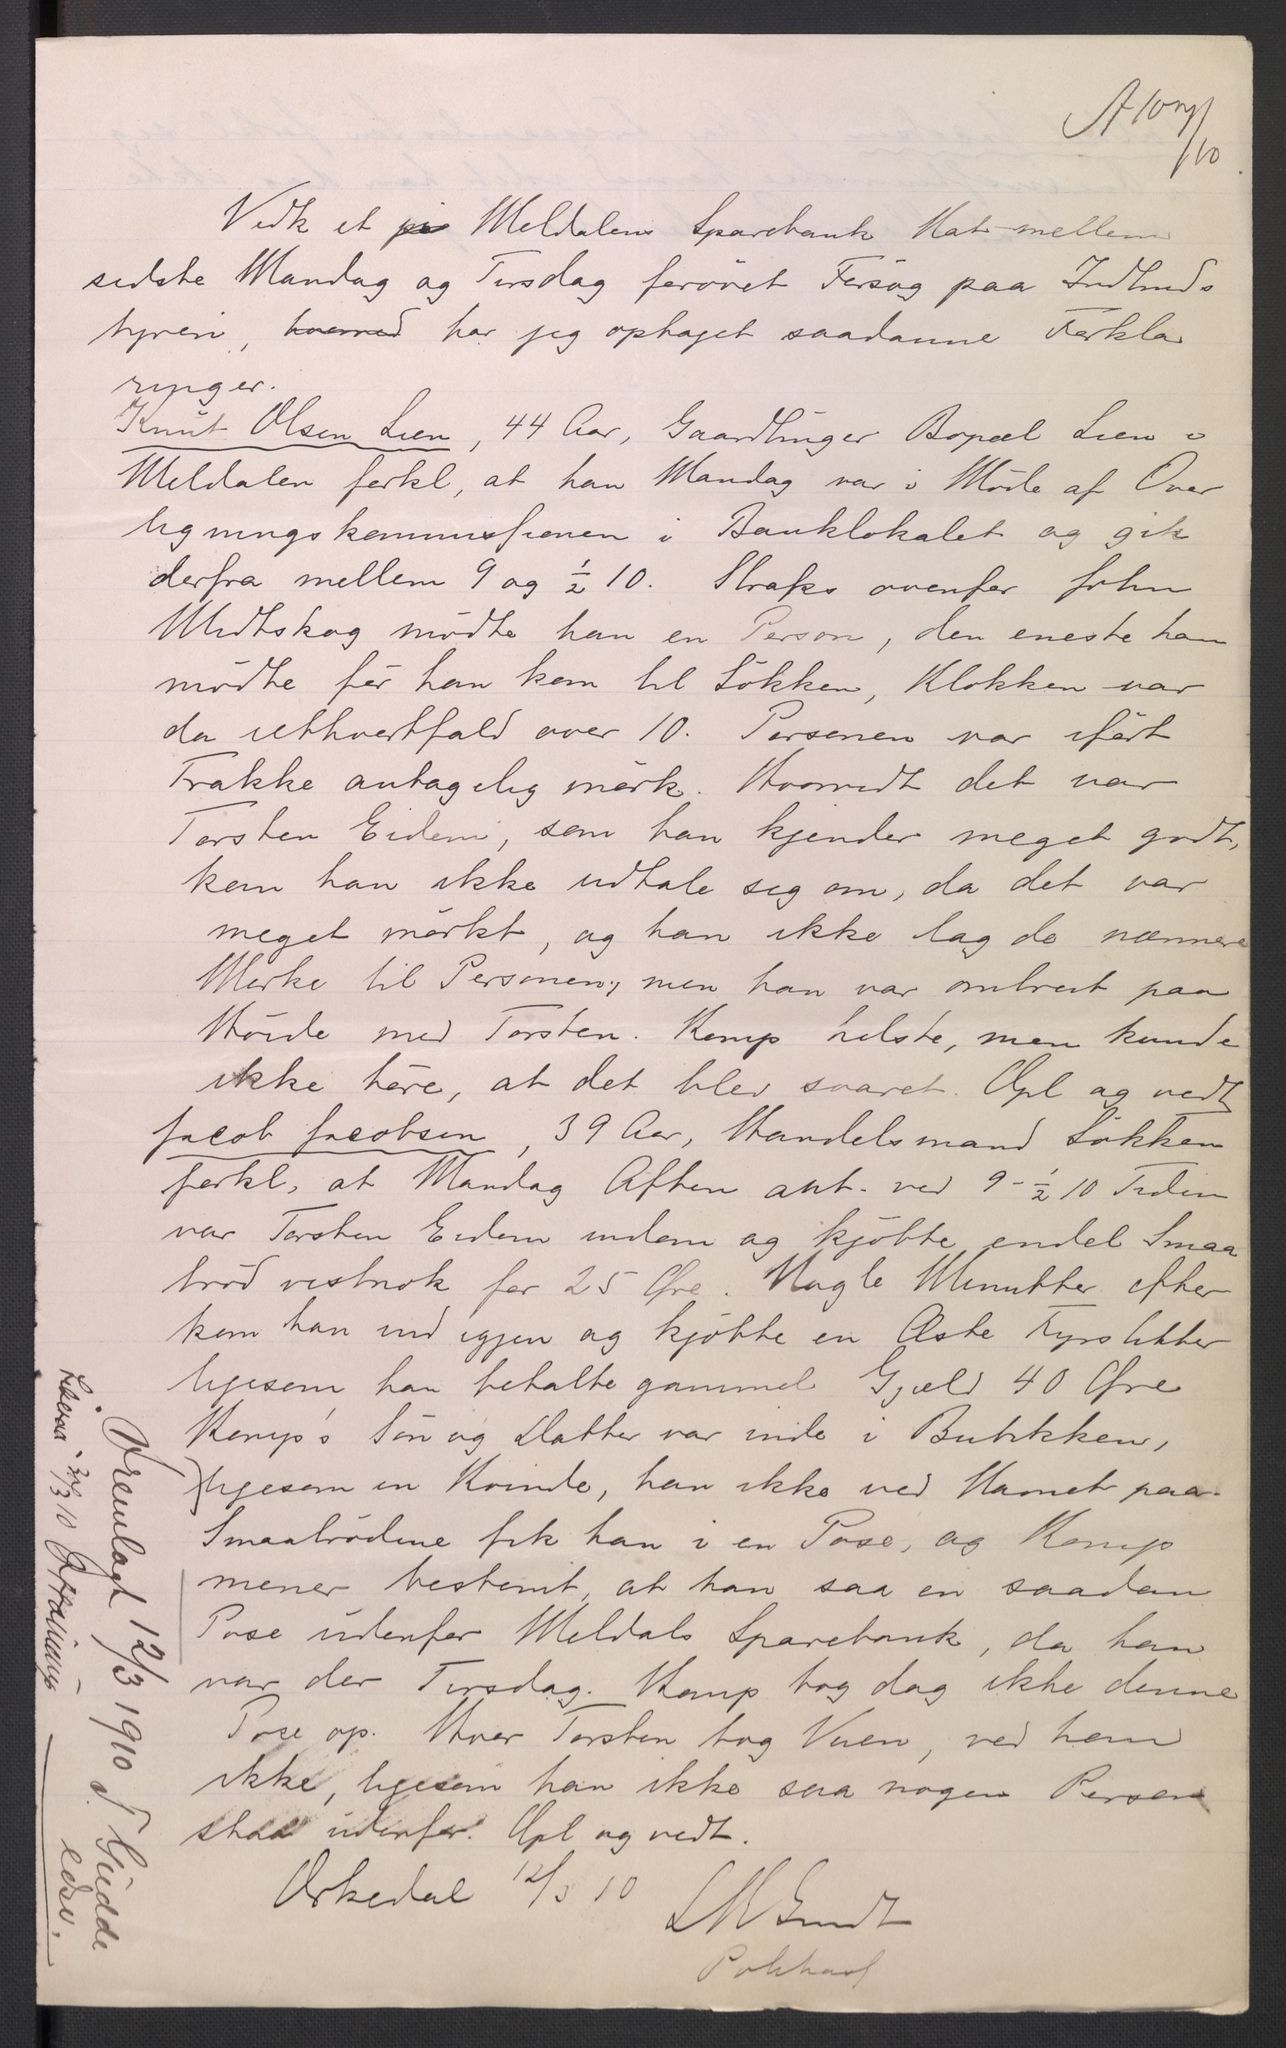 Vedk et paa Meldalens Sparebank Nat mellem
sidste Mandag og Tirsdag forøvet Forsøg paa Indbruds
tyveri, hvorved har jeg optaget saadanne Forkla
ringer.
Knut Olsen Lien, 44 Aar, Gaardbruger Bopæl Lien i
Meldalen forkl, at han Mandag var i Møde af Over
ligningskommissionen i Banklokalet og gik
derfra mellem 9 og ½ 10. Straks ovenfor John
Midtskog mødte han en Person, den eneste han
mødte før han kom til Løkken, Klokken var
da ialhvertfald over 10. Personen var iført
Frakke antagelig mørk. Hvorvidt det var
Torsten Eidem, som han kjender meget godt,
kan han ikke udtale sig om, da det var
meget mørkt, og han ikke lagde nærmere
Merke til Personen, men han var omtrent paa
Høide med Torsten. Komp hilste, men kunde
ikke høre, at det blev svaret. Opl og vedt
Jacob Jacobsen, 39 Aar, Handelsmand Løkken
forkl, at Mandag Aften ant. ved 9-½ 10 Tiden
var Torsten Eidem indom og kjøbte endel Smaa
brød vistnok for 25 Øre. Nogle Minutter efter
kom han ind igjen og kjøbte en Æske Fyrstikker
ligesom han betalte gammel Gjæld 40 Øre
Komp's Søn og Datter var inde i Butikken,
ligesom en Kvinde, han ikke ved Navnet paa.
Smaabrødene fik han i en Pose, og Komp
mener bestemt, at han saa en saadan
Pose udenfor Meldals Sparebank, da han
var der Tirsdag. Komp tog dog ikke denne
Pose op. Hvor Torsten tog Veien, ved han
ikke, ligesom han ikke saa nogen Person
staa udenfor. Opl og vedt.
Orkedal 12/3 10
Fremlagt 12/3 1910